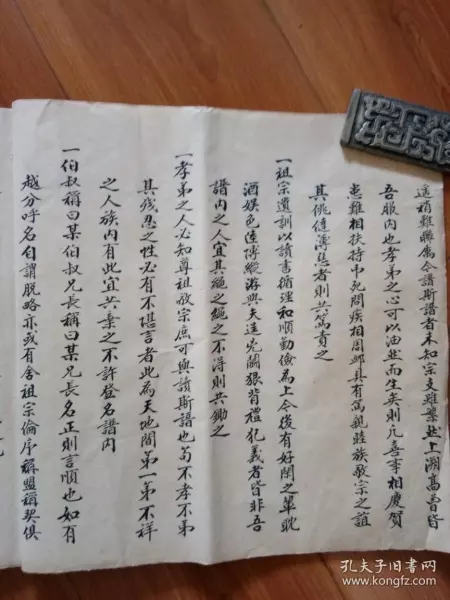 遥稍難聯属今讀斯譜者未知宗支雖繁然上溯高曾皆
吾服内也孝弟之心可以油然而生矣則凡喜事相慶賀
患難相扶持弔死問疾相周卹具有篤親睦族敬宗之誼
其佻健薄惡者則共篤責之
一祖宗遺訓以讀書循理和順勤儉為上今後有好閑之輩耽
酒娱色連博縱游與夫逞兇鬪狠背禮犯義者皆非吾
譜内之人宜共繩之繩之不得則共鋤之
一孝弟之人必知尊祖敬宗庶可與讀斯語也苟不孝不弟
其殘忍之性必有不堪言者此為天地間第一第不祥
之人族内有此宜共棄之不許登名譜内
一伯叔稱曰某伯叔兄長稱曰某兄長名正則言順也如有
越分呼名自謂脱略亦或有舍祖宗倫序稱盟稱契俱
孔夫子旧书网
www.kongfz.com